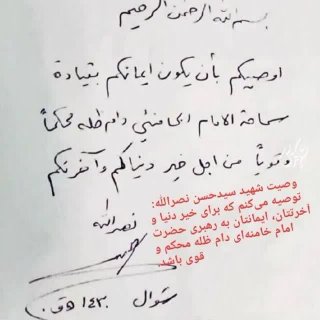 بسم الله الرحمن الرحيم
اوصيكم بأن يكون ايمانكم بقيادة
سماحة الامام الخامنئي دام ظله محكماً
وقوياً من اجل خير دنياكم وآخرتكم
وصیت شهید سیدحسن نصرالله:
توصیه می‌کنم که برای خیر دنیا و
آخرتتان، ایمانتان به رهبری حضرت
امام خامنه‌ای دام ظله محکم و
قوی باشد.
نصر الله
شوال ١٤٢٠ هـ ق.